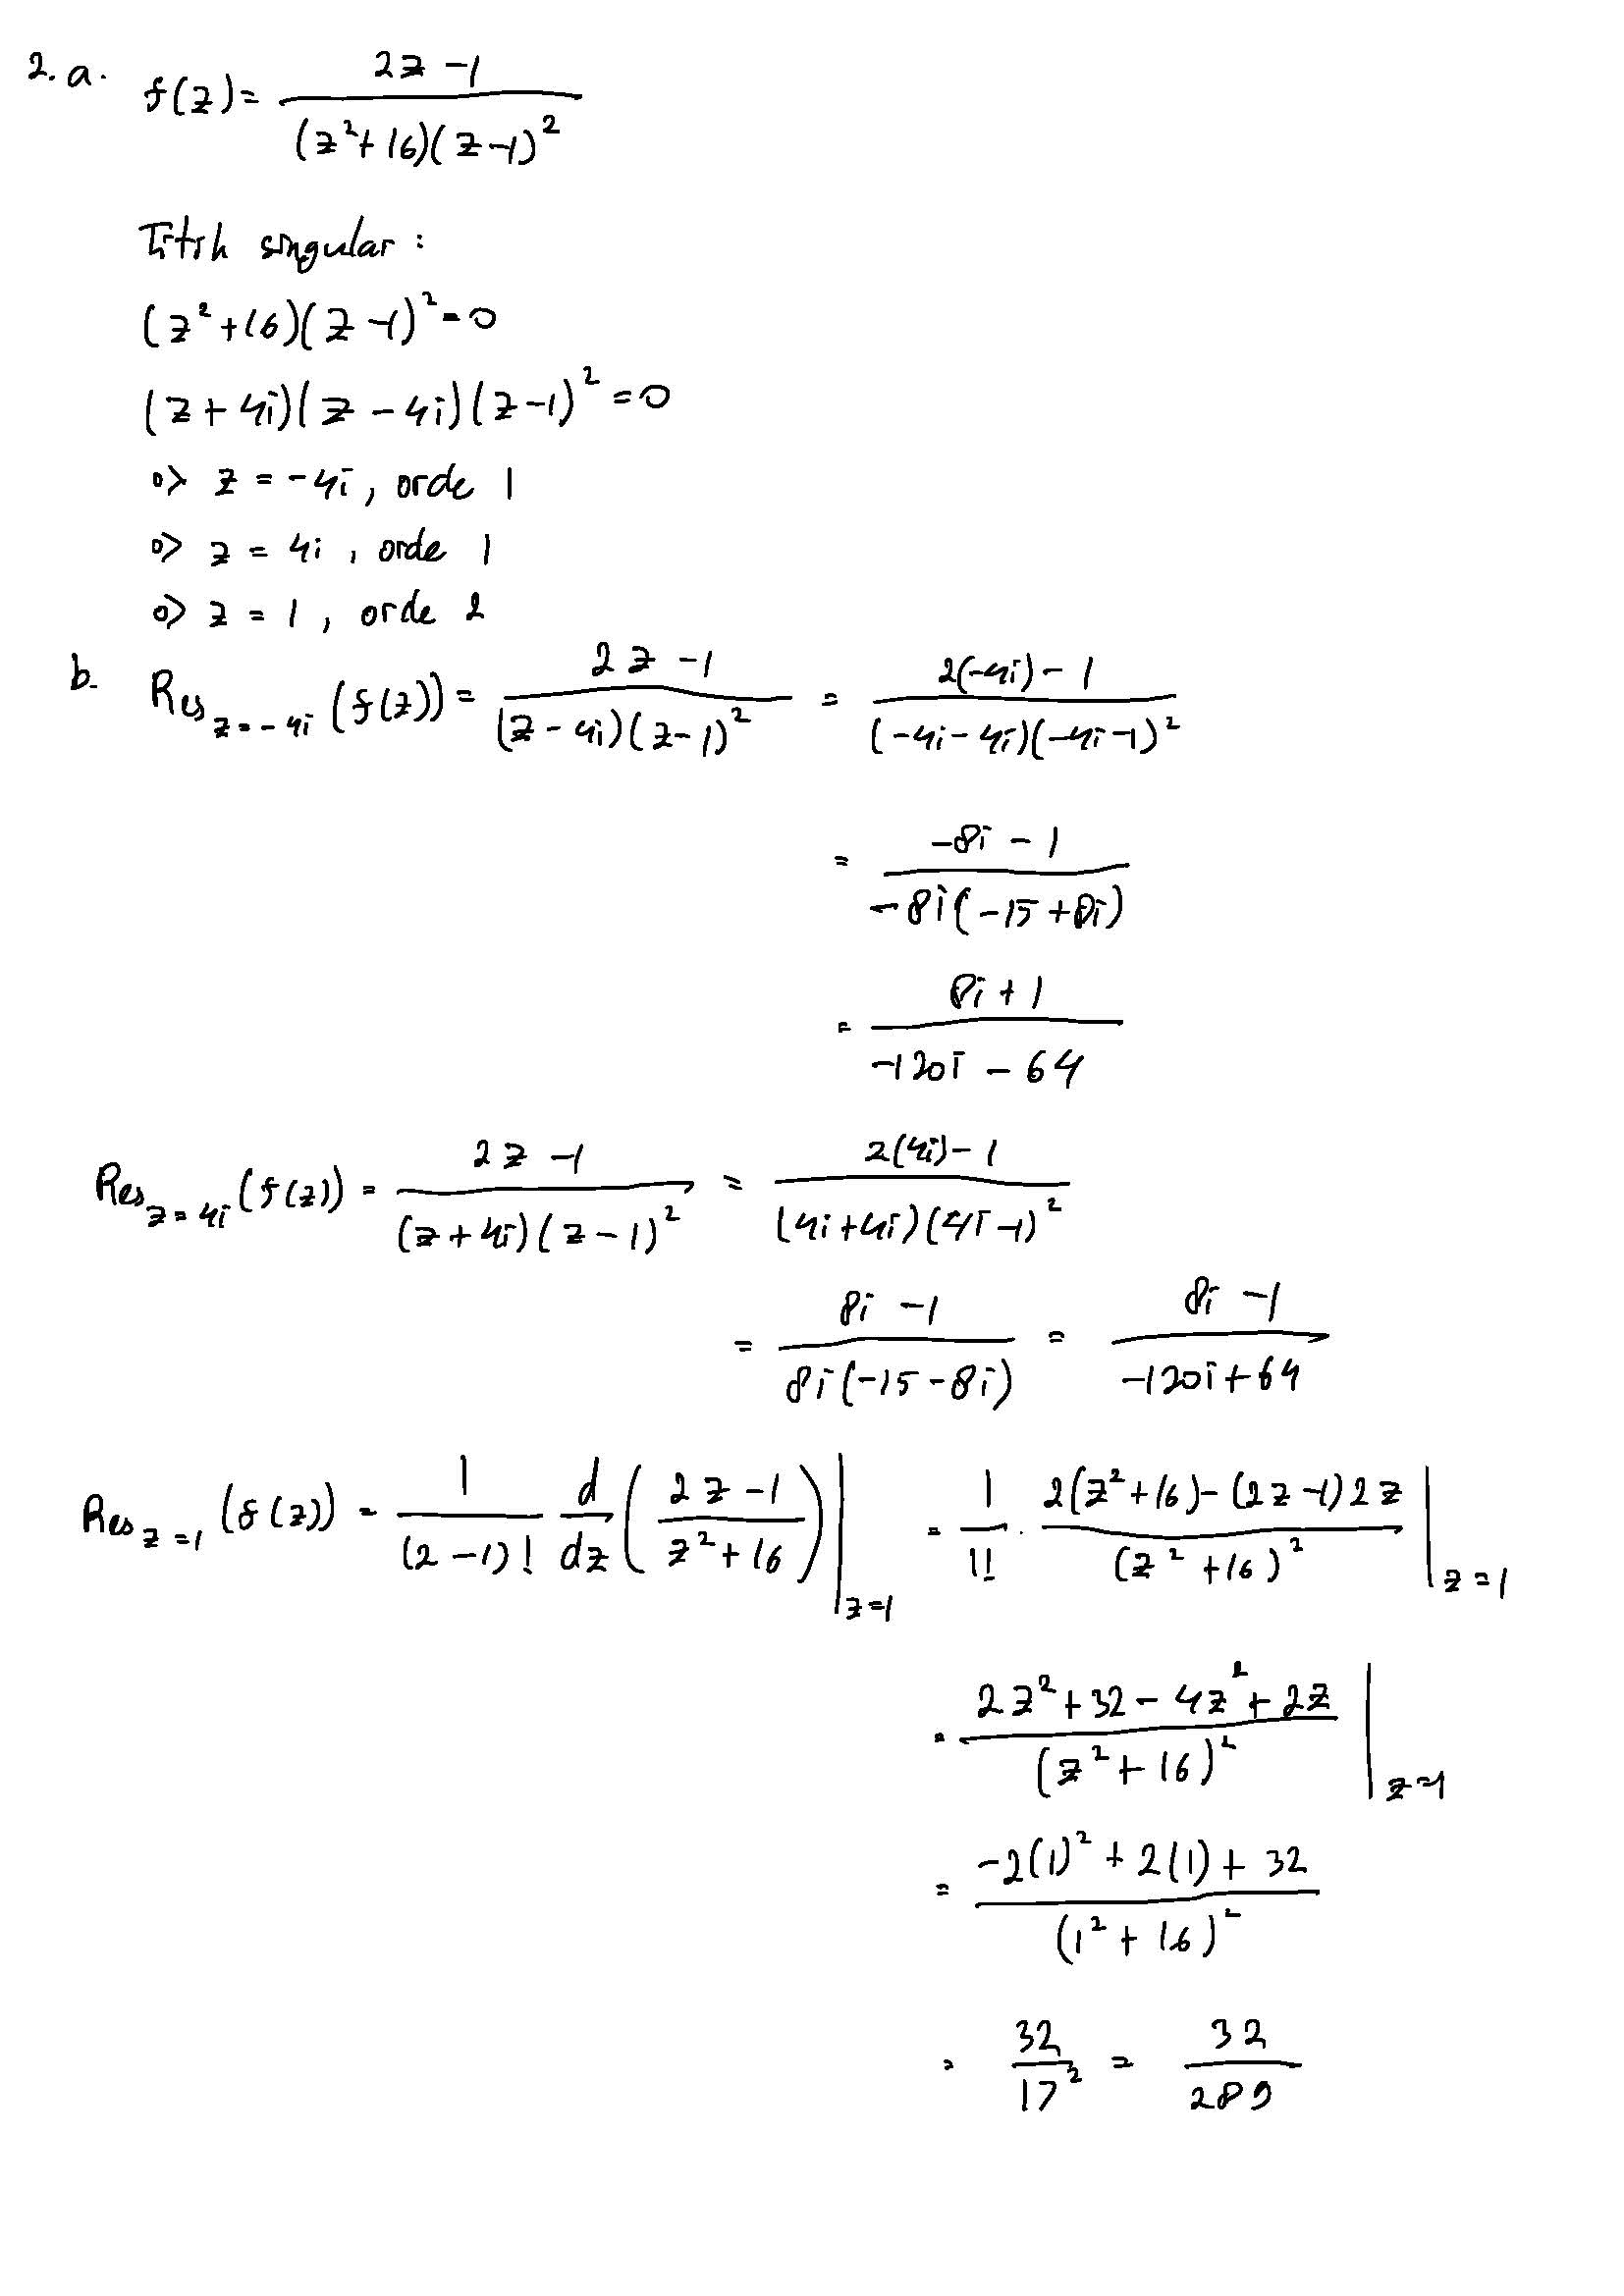 2. a. f(z) = (2z - 1) / ((z² + 16)(z - 1)²)
Titik singular :
(z² + 16)(z - 1)² = 0
(z + 4i)(z - 4i)(z - 1)² = 0
o> z = -4i, orde 1
o> z = 4i, orde 1
o> z = 1, orde 2
b. Res_{z = -4i} (f(z)) = (2z - 1) / ((z - 4i)(z - 1)²) = (2(-4i) - 1) / ((-4i - 4i)(-4i - 1)²)
= (-8i - 1) / (-8i(-15 + 8i))
= (8i + 1) / (-120i - 64)
Res_{z = 4i} (f(z)) = (2z - 1) / ((z + 4i)(z - 1)²) = (2(4i) - 1) / ((4i + 4i)(4i - 1)²)
= (8i - 1) / (8i(-15 - 8i)) = (8i - 1) / (-120i + 64)
Res_{z = 1} (f(z)) = 1 / (2 - 1)! d/dz ((2z - 1) / (z² + 16)) |_{z = 1} = 1/1! · (2(z² + 16) - (2z - 1)2z) / (z² + 16)² |_{z = 1}
= (2z² + 32 - 4z² + 2z) / (z² + 16)² |_{z = 1}
= (-2(1)² + 2(1) + 32) / (1² + 16)²
= 32 / 17² = 32 / 289